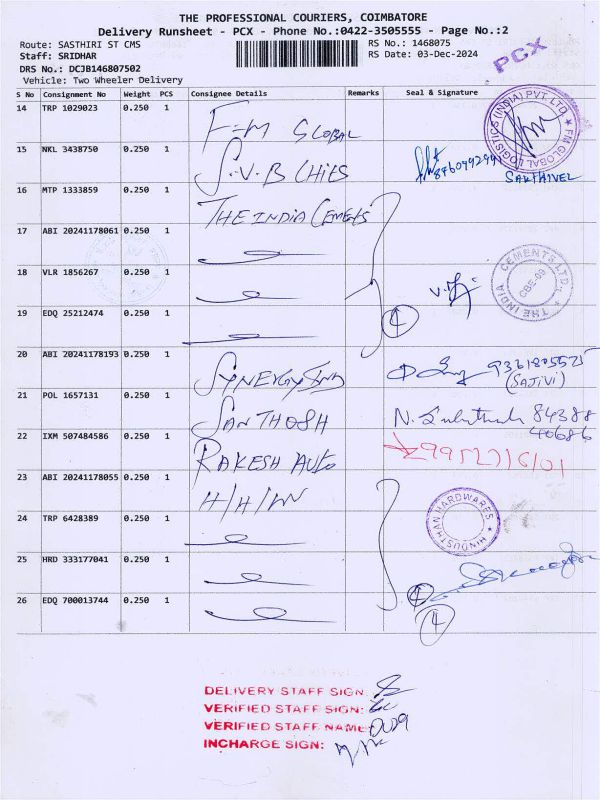 THE PROFESSIONAL COURIERS, COIMBATORE
Delivery Runsheet - PCX - Phone No.:0422-3505555 - Page No.:2
Route: SASTHIRI ST CMS
RS No.: 1468075
Staff: SRIDHAR
RS Date: 03-Dec-2024
DRS No.: DCJB146807502
Vehicle: Two Wheeler Delivery
PCX
S No Consignment No Weight PCS Consignee Details Remarks Seal & Signature
14 TRP 1029023 0.250 1 F-M GLOBAL
FM GLOBAL LOGISTICS (INDIA) PVT. LTD.
15 NKL 3438750 0.250 1 S.V.B CHITS
SAKTHIVEL
16 MTP 1333859 0.250 1 THE INDIA CEMENTS
17 ABI 20241178061 0.250 1
18 VLR 1856267 0.250 1
THE INDIA CEMENTS LTD.
CBE-09
19 EDQ 25212474 0.250 1
4
20 ABI 20241178193 0.250 1 SYNERGY IND
9361805525
(SAJIVI)
21 POL 1657131 0.250 1 SANTHOSH
84388
40686
22 IXM 507484586 0.250 1 RAKESH AUTO
23 ABI 20241178055 0.250 1 H/H/W
HINDUSTHAN HARDWARES
24 TRP 6428389 0.250 1
25 HRD 333177041 0.250 1
26 EDQ 700013744 0.250 1
4
4
DELIVERY STAFF SIGN:
VERIFIED STAFF SIGN:
VERIFIED STAFF NAME:
INCHARGE SIGN: